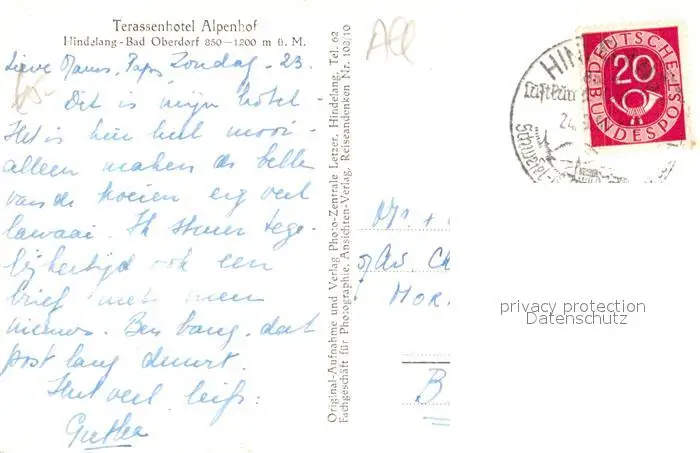 Terassenhotel Alpenhof
Hindelang-Bad Oberdorf 850-1200 m ü. M.
Lieve Mams, Paps, Zondag - 23.
Dit is mijn hotel
Het is hier heel mooi -
alleen maken de bellen
van de koeien erg veel
lawaai. Ik stuur tege-
lijkertijd ook een
brief met meer
nieuws. Ben bang, dat
post lang duurt.
Heel veel liefs:
Original-Aufnahme und Verlag Photo-Zentrale Letzer, Hindelang, Tel. 62
Fachgeschäft für Photographie, Ansichten-Verlag, Reiseandenken Nr. 103/10
DEUTSCHE
BUNDESPOST
20
HIN
24.
Mrs +
MOR
B
privacy protection
Datenschutz